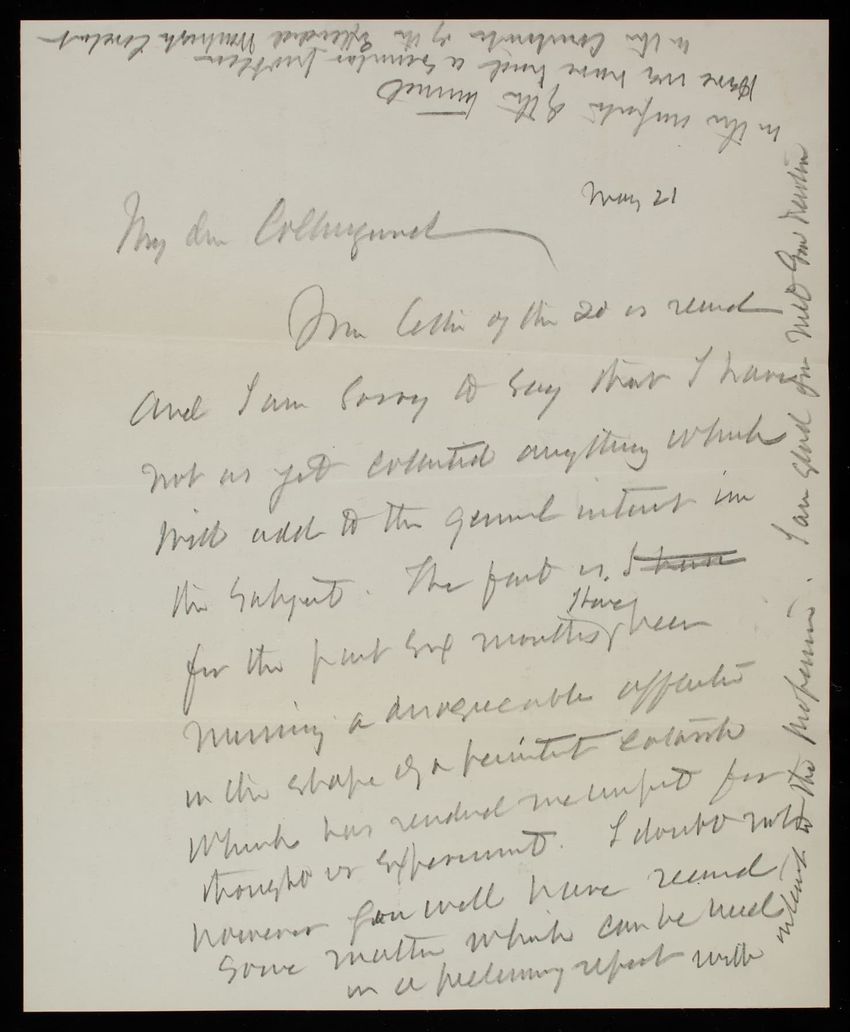 May 21
My dear Collingwood
Your letter of the 20 is recevd
and I am sorry to say that I have
not as yet collected anything which
will add to the general interest in
the subject. The fact is, I have
for the past six months, have been
nursing a disagreeable affection
in the shape of a persistent catarrh
which has rendered me unfit for
thought or experiment. I doubt not
however you will have received
some matter which can be used
in a preliminary report with
interest to the profession. I am glad you met Gen Newton
in the
of the tunnel
Here we have had a similar problem
in the construction of the